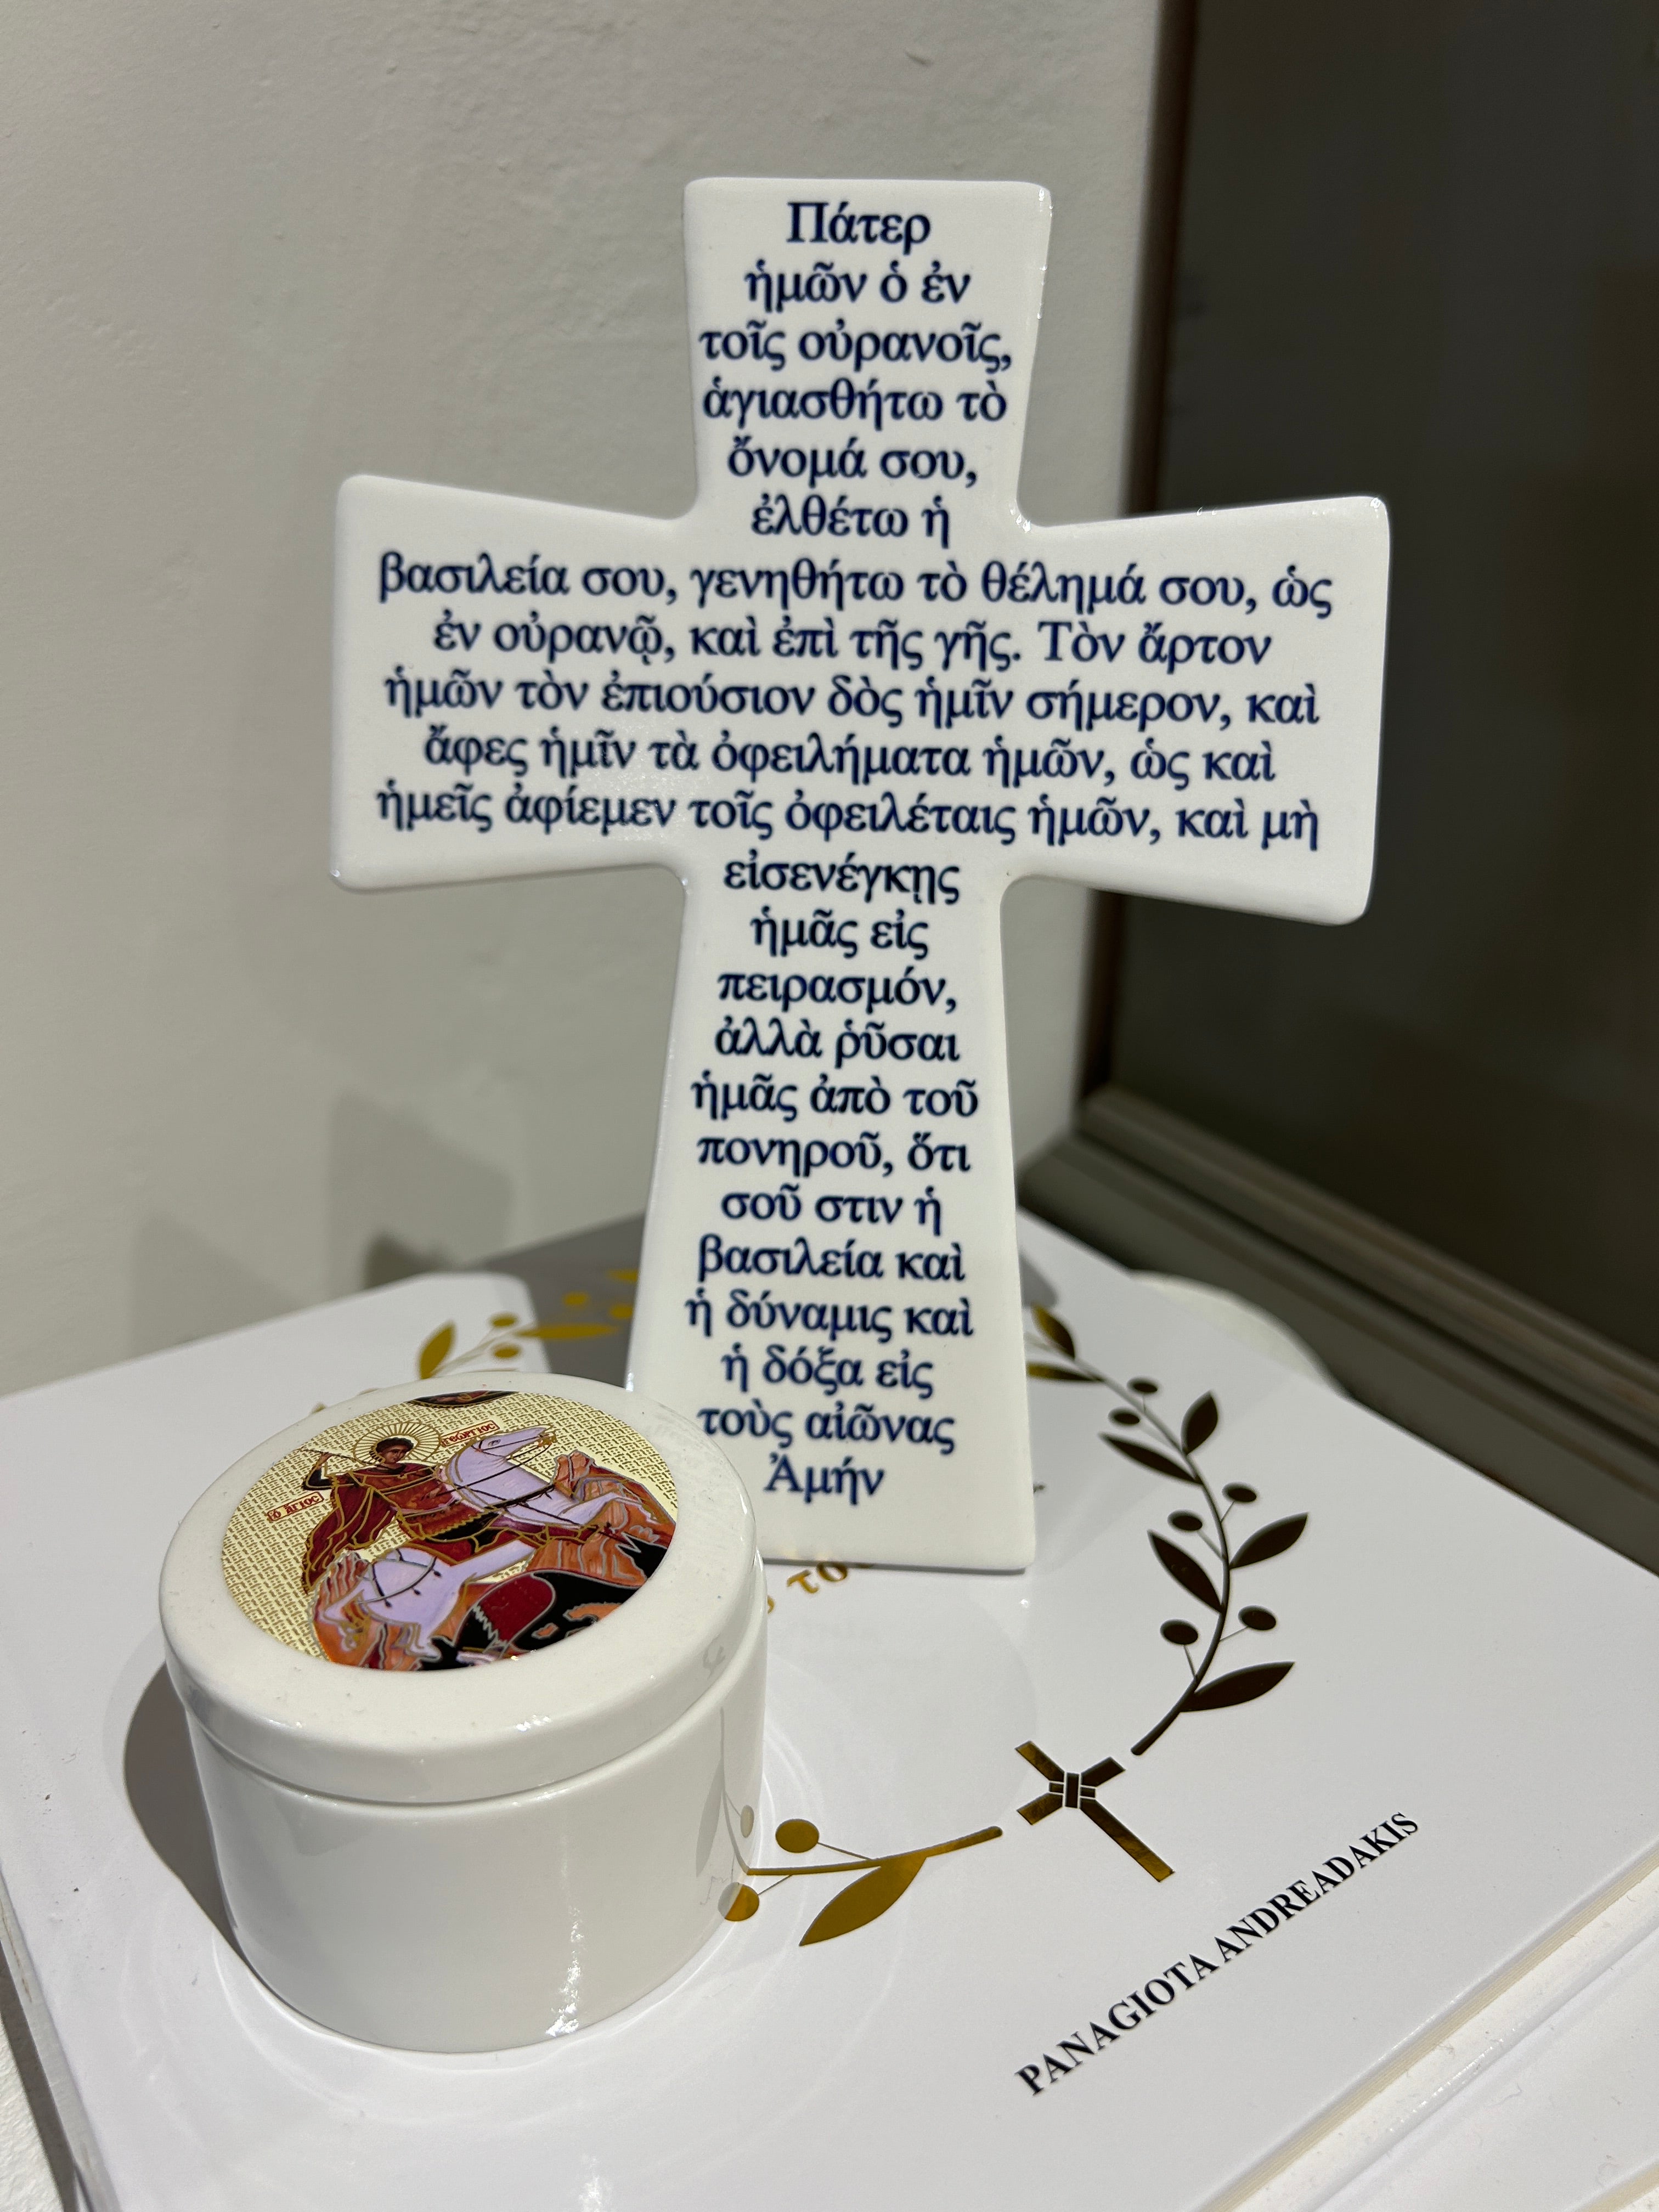 Πάτερ
ἡμῶν ὁ ἐν
τοῖς οὐρανοῖς,
ἁγιασθήτω τὸ
ὄνομά σου,
ἐλθέτω ἡ
βασιλεία σου, γενηθήτω τὸ θέλημά σου, ὡς
ἐν οὐρανῷ, καὶ ἐπὶ τῆς γῆς. Τὸν ἄρτον
ἡμῶν τὸν ἐπιούσιον δὸς ἡμῖν σήμερον, καὶ
ἄφες ἡμῖν τὰ ὀφειλήματα ἡμῶν, ὡς καὶ
ἡμεῖς ἀφίεμεν τοῖς ὀφειλέταις ἡμῶν, καὶ μὴ
εἰσενέγκῃς
ἡμᾶς εἰς
πειρασμόν,
ἀλλὰ ῥῦσαι
ἡμᾶς ἀπὸ τοῦ
πονηροῦ, ὅτι
σοῦ στιν ἡ
βασιλεία καὶ
ἡ δύναμις καὶ
ἡ δόξα εἰς
τοὺς αἰῶνας
Ἀμήν
Ὁ ΑΓΙΟΣ
ΓΕΩΡΓΙΟΣ
PANAGIOTA ANDREADAKIS